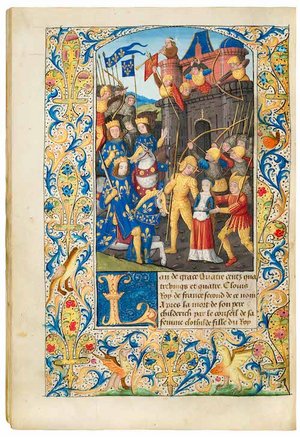 Lan de grace Quatre cens qua
tre vings et quatre. Clouis
Roy de france second de ce nom
Apres la mort de son pere
childerich par le conseil de sa
femme clothilde fille du Roy